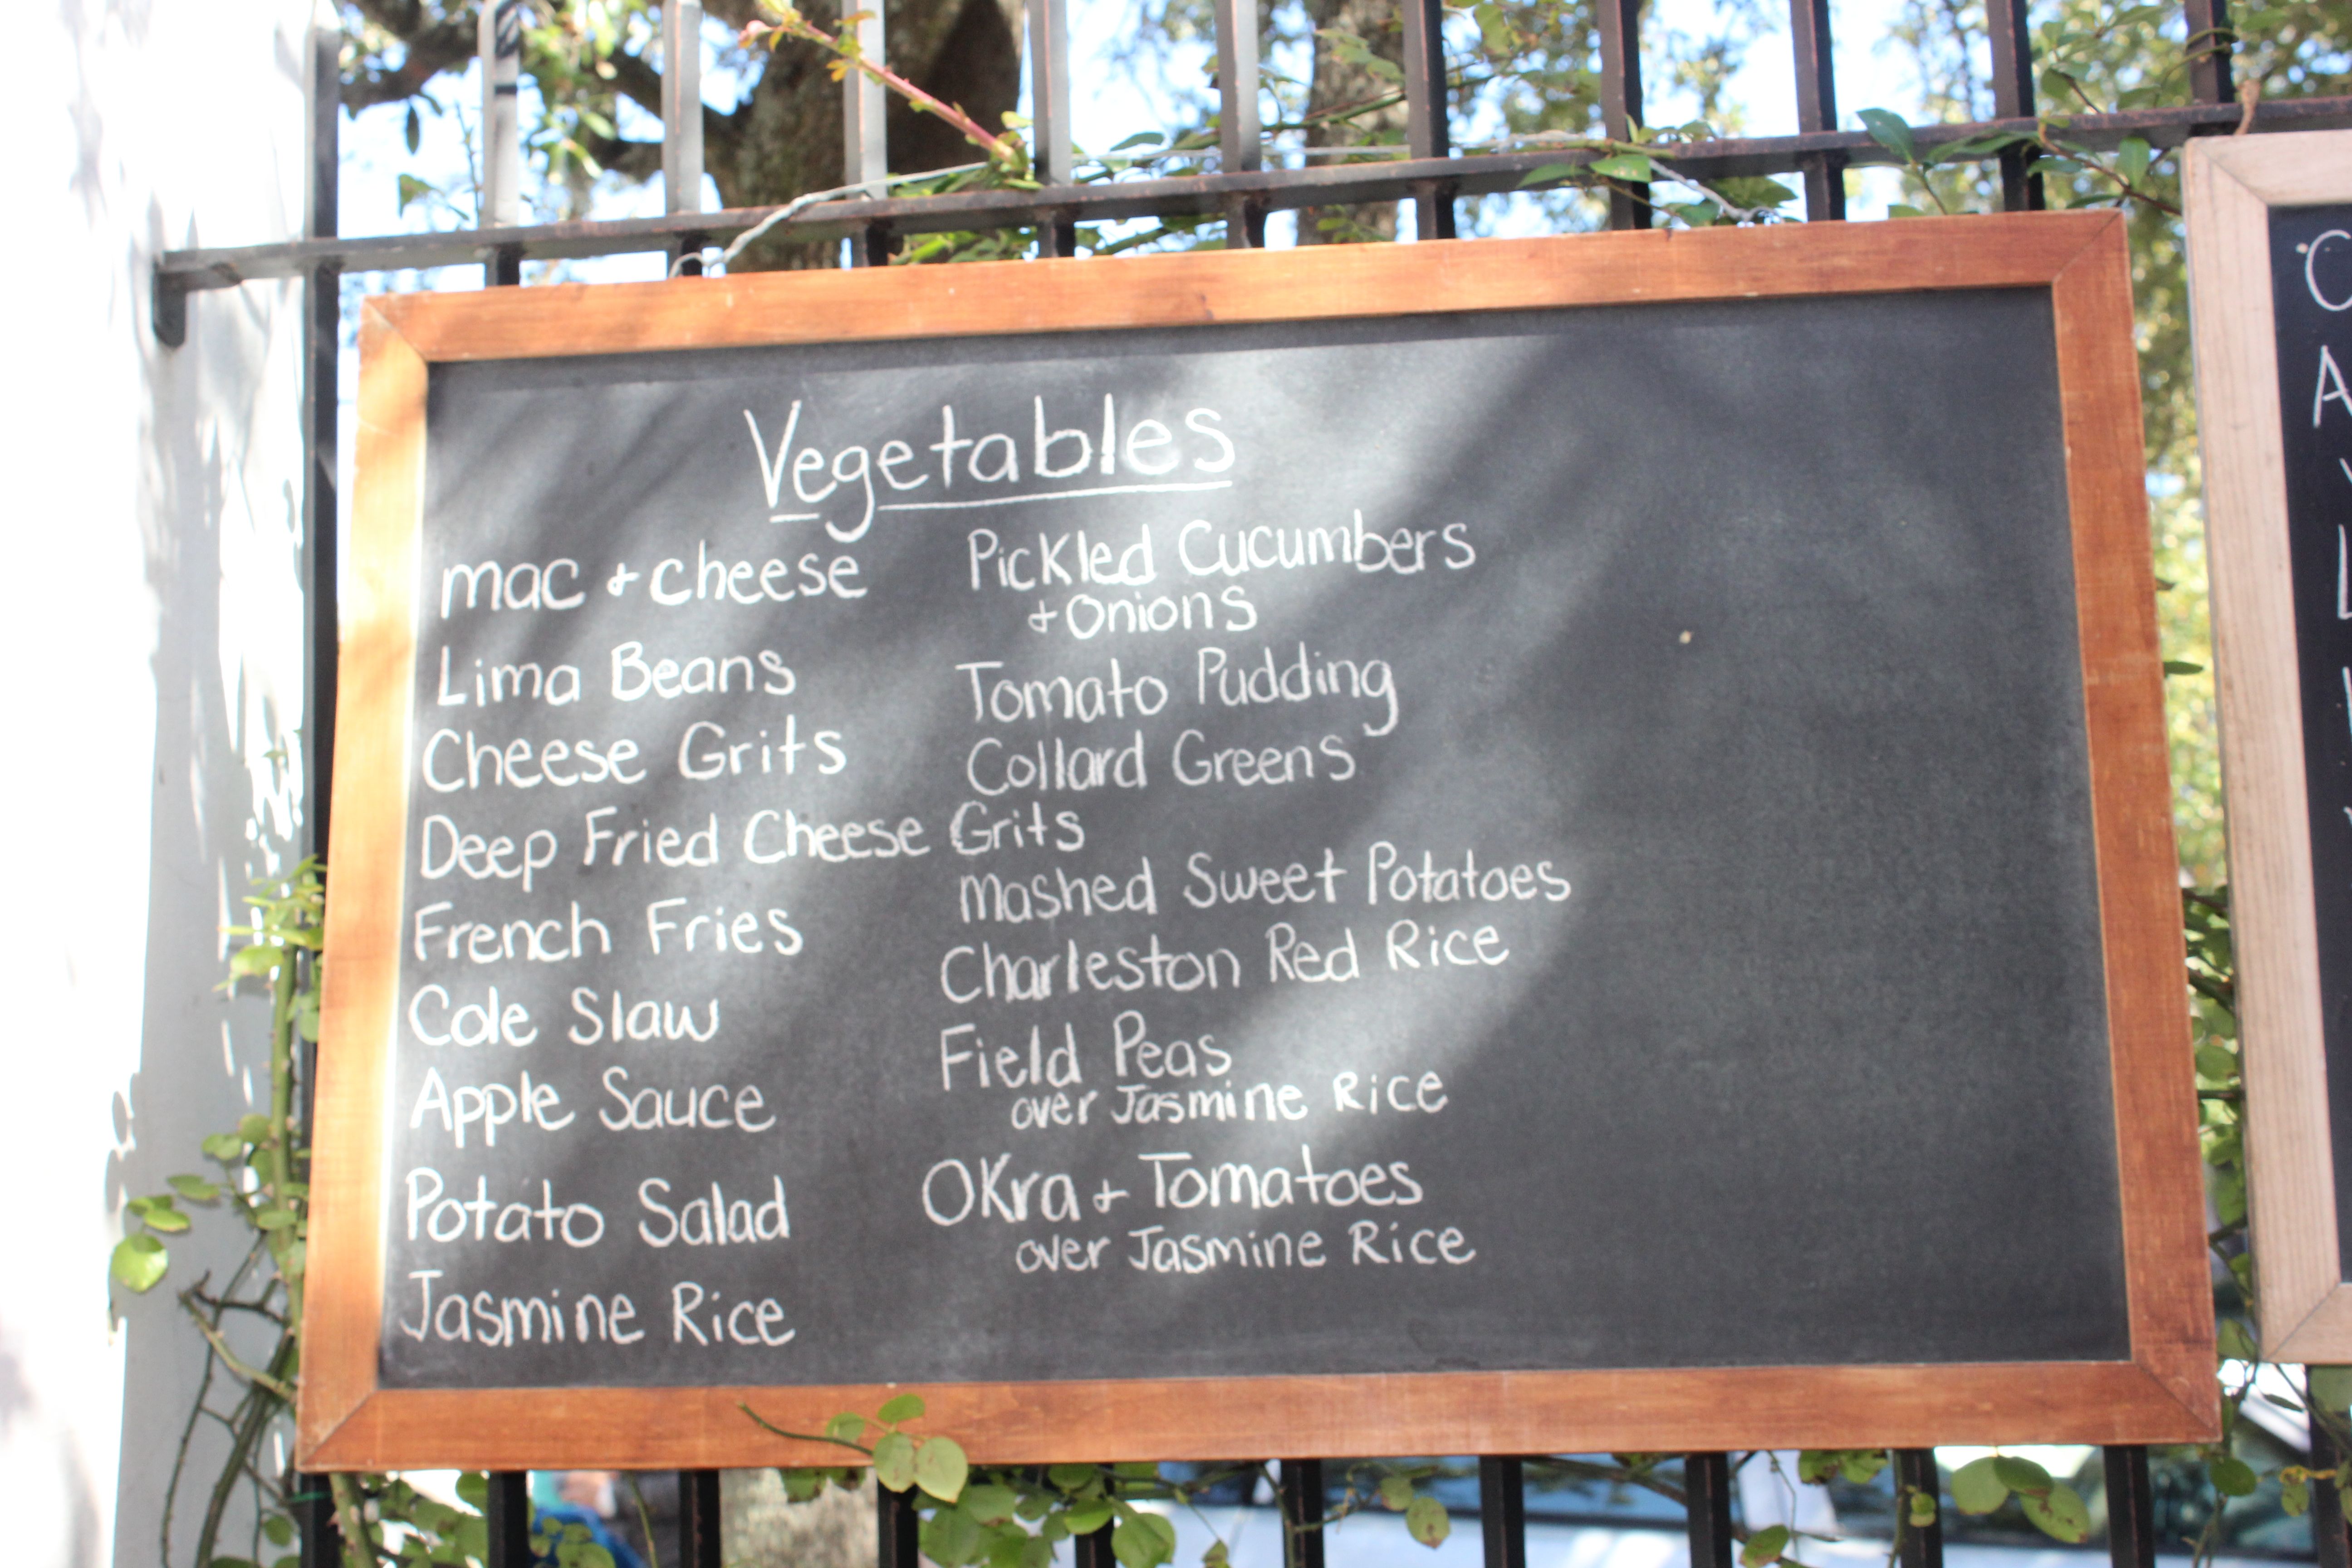 Vegetables
mac + cheese
Lima Beans
Cheese Grits
Deep Fried Cheese Grits
French Fries
Cole Slaw
Apple Sauce
Potato Salad
Jasmine Rice
Pickled Cucumbers
+ Onions
Tomato Pudding
Collard Greens
Mashed Sweet Potatoes
Charleston Red Rice
Field Peas
over Jasmine Rice
Okra + Tomatoes
over Jasmine Rice